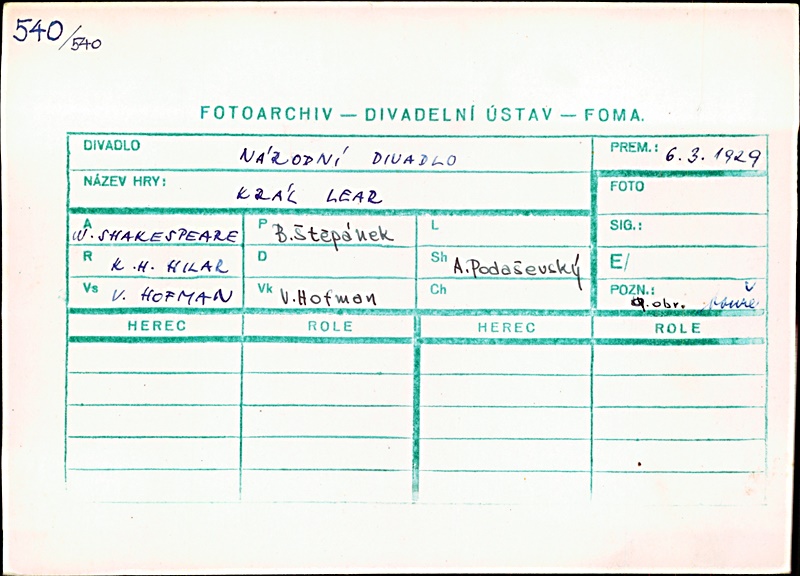 540/540
FOTOARCHIV — DIVADELNÍ ÚSTAV — FOMA.
DIVADLO NÁRODNÍ DIVADLO PREM.: 6.3.1929
NÁZEV HRY: KRÁL LEAR FOTO
A W. SHAKESPEARE P B. Štěpánek L SIG.:
R K. H. HILAR D Sh A. Podaševský E/
Vs V. HOFMAN Vk V. Hofman Ch POZN.: obr.
HEREC ROLE HEREC ROLE